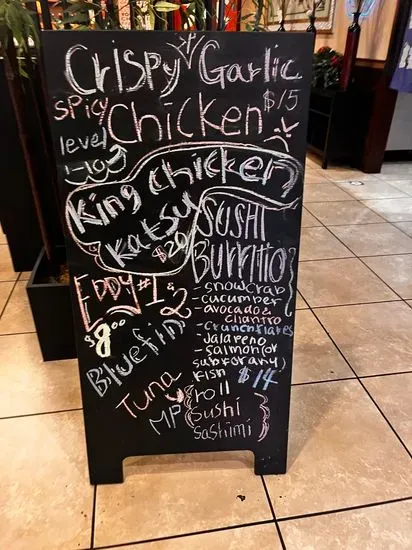 Crispy Garlic
Chicken $15
SPicy
level
1-10
King Chicken
Katsu
$20
SUSHI
Burritto
- snowcrab
- cucumber
- avocado &
cilantro
- Crunchflakes
- Jalapeno
- Salmon (or
sub for any)
Fish $14
EDDY #1 & 2
$8
Bluefin
Tuna
MP
roll
sushi
Sashimi